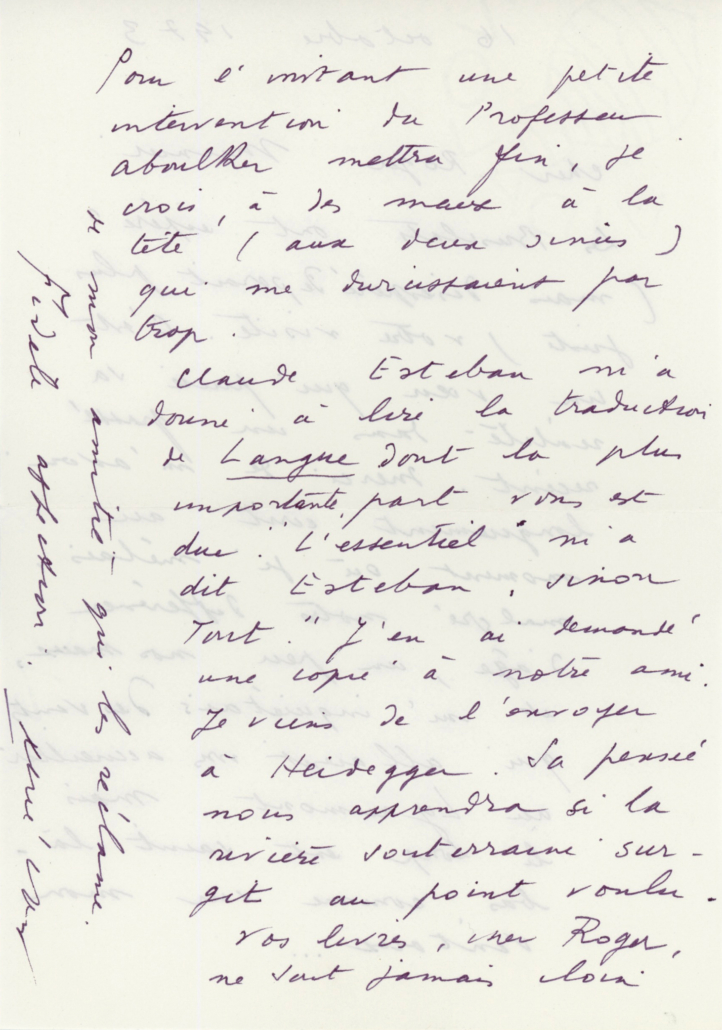 Pour l'instant une petite
intervention du Professeur
Aboulker mettra fin, je
crois, à des maux à la
tête (aux deux sinus)
qui me durcissaient par
trop.
Claude Esteban m'a
donné à lire la traduction
de Langue dont la plus
importante part vous est
due. "L'essentiel" m'a
dit Esteban, sinon
tout." J'en ai demandé
une copie à notre ami.
Je viens de l'envoyer
à Heidegger. Sa pensée
nous apprendra si la
rivière souterraine sur-
git au point voulu.
Vos livres, cher Roger,
ne sont jamais loin
de mon amitié qui les réclame.
Fidèle affection.
René Char